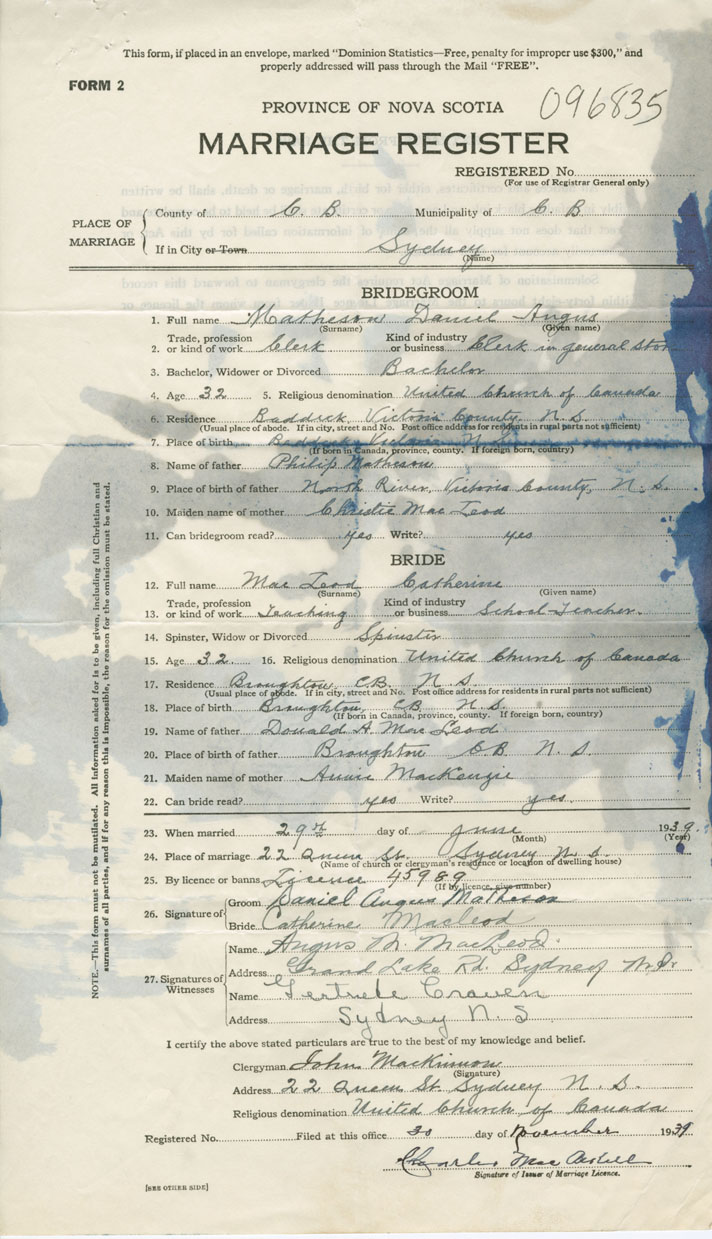 This form, if placed in an envelope, marked "Dominion Statistics—Free, penalty for improper use $300," and
properly addressed will pass through the Mail "FREE".
FORM 2
096835
PROVINCE OF NOVA SCOTIA
MARRIAGE REGISTER
REGISTERED No.
(For use of Registrar General only)
PLACE OF MARRIAGE
County of C. B. Municipality of C. B
If in City or Town Sydney
(Name)
BRIDEGROOM
1. Full name Matheson Daniel Angus
(Surname) (Given name)
2. Trade, profession or kind of work Clerk Kind of industry or business Clerk in general Stor
3. Bachelor, Widower or Divorced Bachelor
4. Age 32 5. Religious denomination United Church of Canada
6. Residence Baddeck, Victoria County, N. S.
(Usual place of abode. If in city, street and No. Post office address for residents in rural parts not sufficient)
7. Place of birth Baddeck, Victoria N. S.
(If born in Canada, province, county. If foreign born, country)
8. Name of father Philip Matheson
9. Place of birth of father North River, Victoria County, N. S.
10. Maiden name of mother Christie Mac Leod
11. Can bridegroom read? yes Write? yes
BRIDE
12. Full name Mac Leod Catherine
(Surname) (Given name)
13. Trade, profession or kind of work Teaching Kind of industry or business School-Teacher.
14. Spinster, Widow or Divorced Spinster
15. Age 32 16. Religious denomination United Church of Canada
17. Residence Broughton, C.B. N. S.
(Usual place of abode. If in city, street and No. Post office address for residents in rural parts not sufficient)
18. Place of birth Broughton, C.B. N. S.
(If born in Canada, province, county. If foreign born, country)
19. Name of father Donald A. Mac Leod
20. Place of birth of father Broughton C.B. N. S.
21. Maiden name of mother Annie MacKenzie
22. Can bride read? yes Write? yes.
23. When married 29th day of June 1939.
(Month) (Year)
24. Place of marriage 22 Queen St. Sydney N. S.
(Name of church or clergyman's residence or location of dwelling house)
25. By licence or banns Licence 45989
(If by licence, give number)
26. Signature of
Groom Daniel Angus Matheson
Bride Catherine Macleod
27. Signatures of Witnesses
Name Angus M. MacLeod.
Address Grand Lake Rd. Sydney N.S.
Name Gertrude Craven
Address Sydney N. S
I certify the above stated particulars are true to the best of my knowledge and belief.
Clergyman John MacKinnon
(Signature)
Address 22 Queen St. Sydney N. S.
Religious denomination United Church of Canada
Registered No. Filed at this office 30 day of November 1939
Charles Mac
Signature of Issuer of Marriage Licence.
[SEE OTHER SIDE]
NOTE.—This form must not be mutilated. All information asked for is to be given, including full Christian and
surnames of all parties, and if for any reason this is impossible, the reason for the omission must be stated.